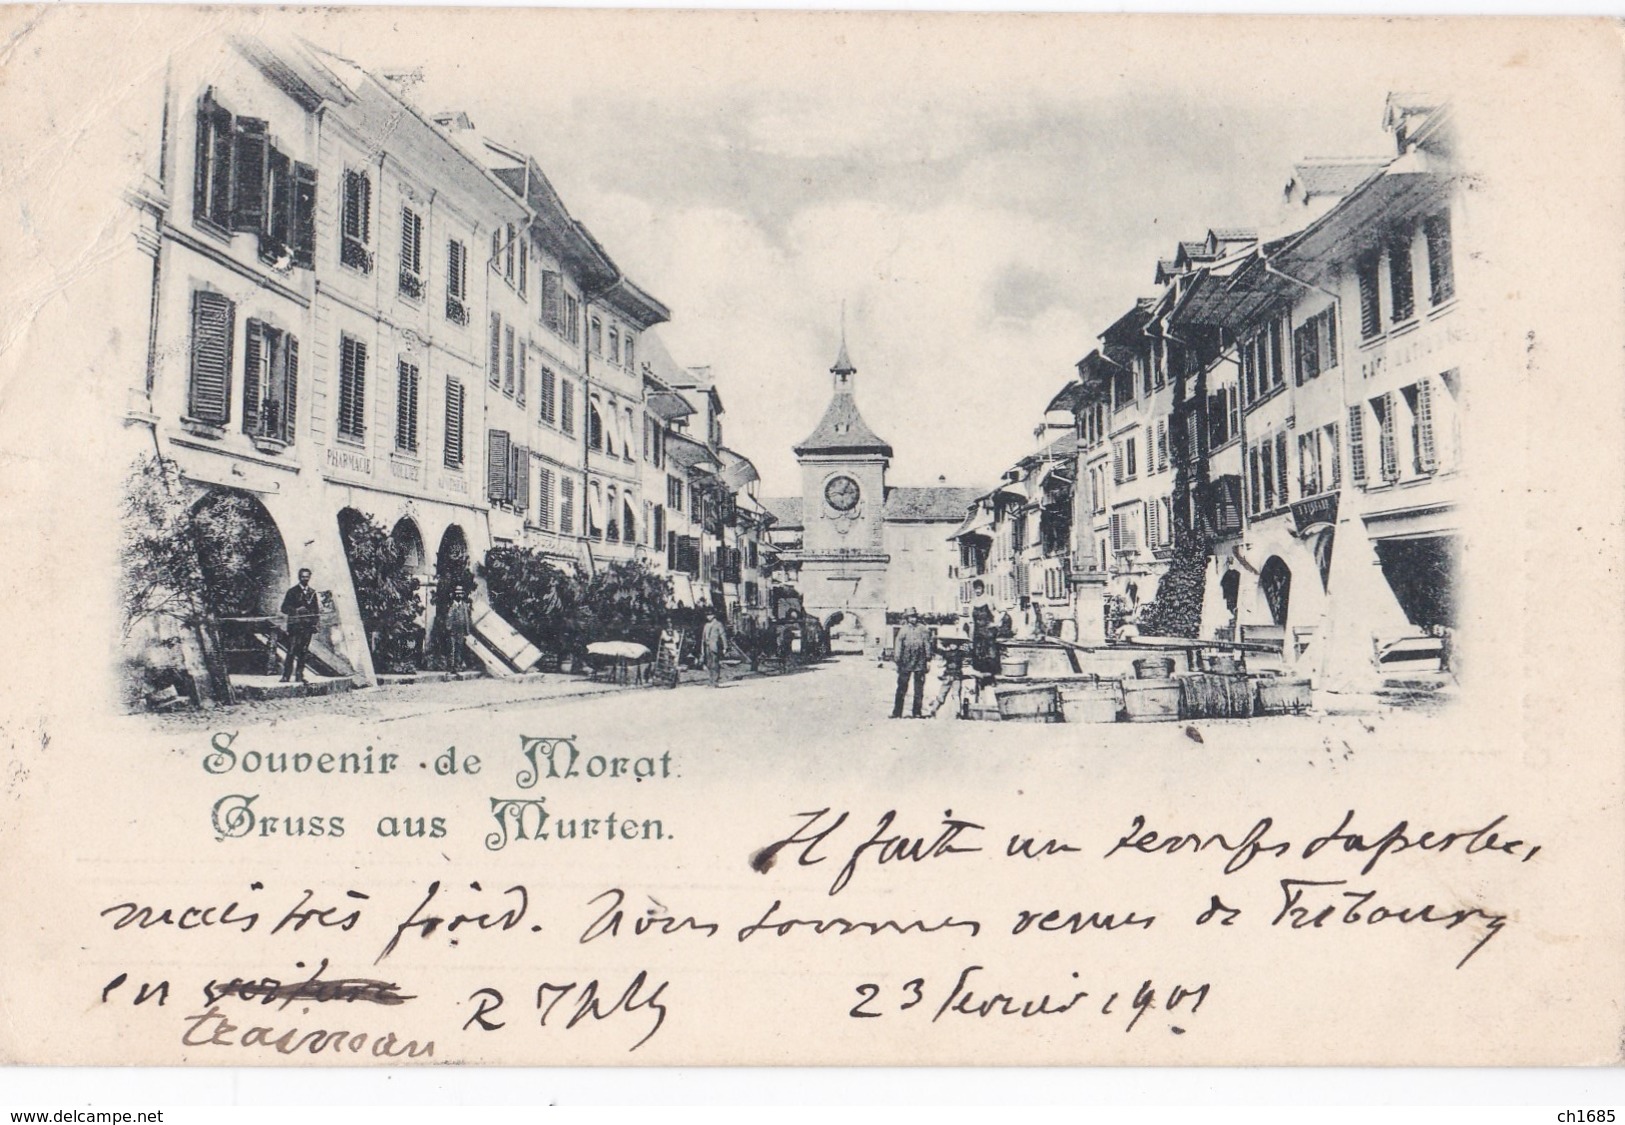 PHARMACIE
CAFÉ NATIONAL
Souvenir de Morat.
Gruss aus Murten.
Il fait un temps superbe,
mais très froid. Nous sommes venus de Fribourg
en voiture
traineau
23 février 1901
www.delcampe.net
ch1685